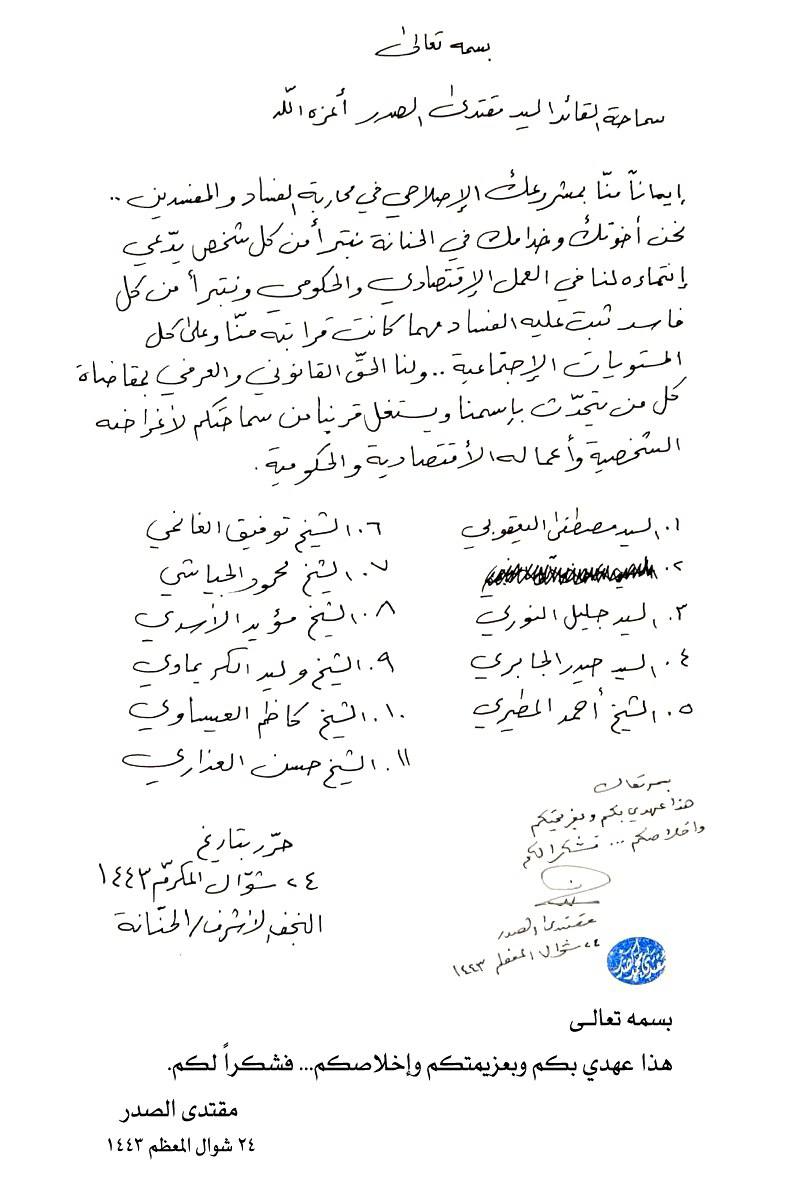 بسمه تعالى
سماحة القائد السيد مقتدى الصدر أعزه الله
إيماناً منّا بمشروعك الإصلاحي في محاربة الفساد والمفسدين ..
نحن أخوتك وخدامك في الحنانة نتبرأ من كل شخص يدّعي
إنتماءه لنا في العمل الإقتصادي والحكومي ونتبرأ من كل
فاسد ثبت عليه الفساد مهما كانت قرابته منّا وعلى كل
المستويات الإجتماعية .. ولنا الحقّ القانوني والعرفي بمقاضاة
كل من يتحدّث بإسمنا ويستغل قربنا من سماحتكم لأغراضه
الشخصية وأعماله الأقتصادية والحكومية .
١. السيد مصطفى اليعقوبي
٢.
٣. السيد جليل النوري
٤. السيد حيدر الجابري
٥. الشيخ أحمد المطيري
٦. الشيخ توفيق الغانمي
٧. الشيخ محمود الجياشي
٨. الشيخ مؤيد الأسدي
٩. الشيخ وليد الكريماوي
١٠. الشيخ كاظم العيساوي
١١. الشيخ حسن العذاري
حرّر بتاريخ
٢٤ شوّال المكرّم ١٤٤٣
النجف الأشرف/الحنّانة
بسمه تعالى
هذا عهدي بكم وبعزيمتكم
واخلاصكم ... فشكرا لكم
مقتدى الصدر
٢٤ شوال المعظم ١٤٤٣
بسمه تعالـى
هذا عهدي بكم وبعزيمتكم وإخلاصكم... فشكراً لكم.
مقتدى الصدر
٢٤ شوال المعظم ١٤٤٣